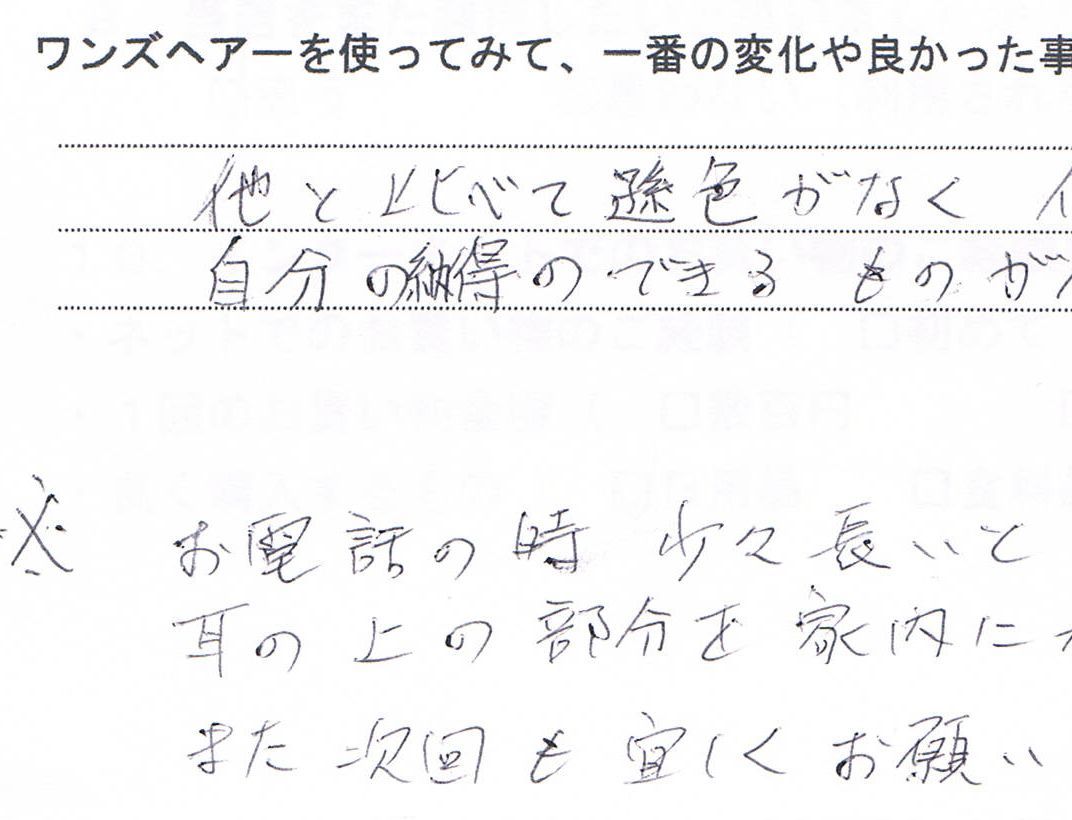 ワンズヘアーを使ってみて、一番の変化や良かった事
他と比べて遜色がなく
自分の納得のできる ものが
※ お電話の時 少々長いと
耳の上の部分を家内に
また次回も宜しくお願い